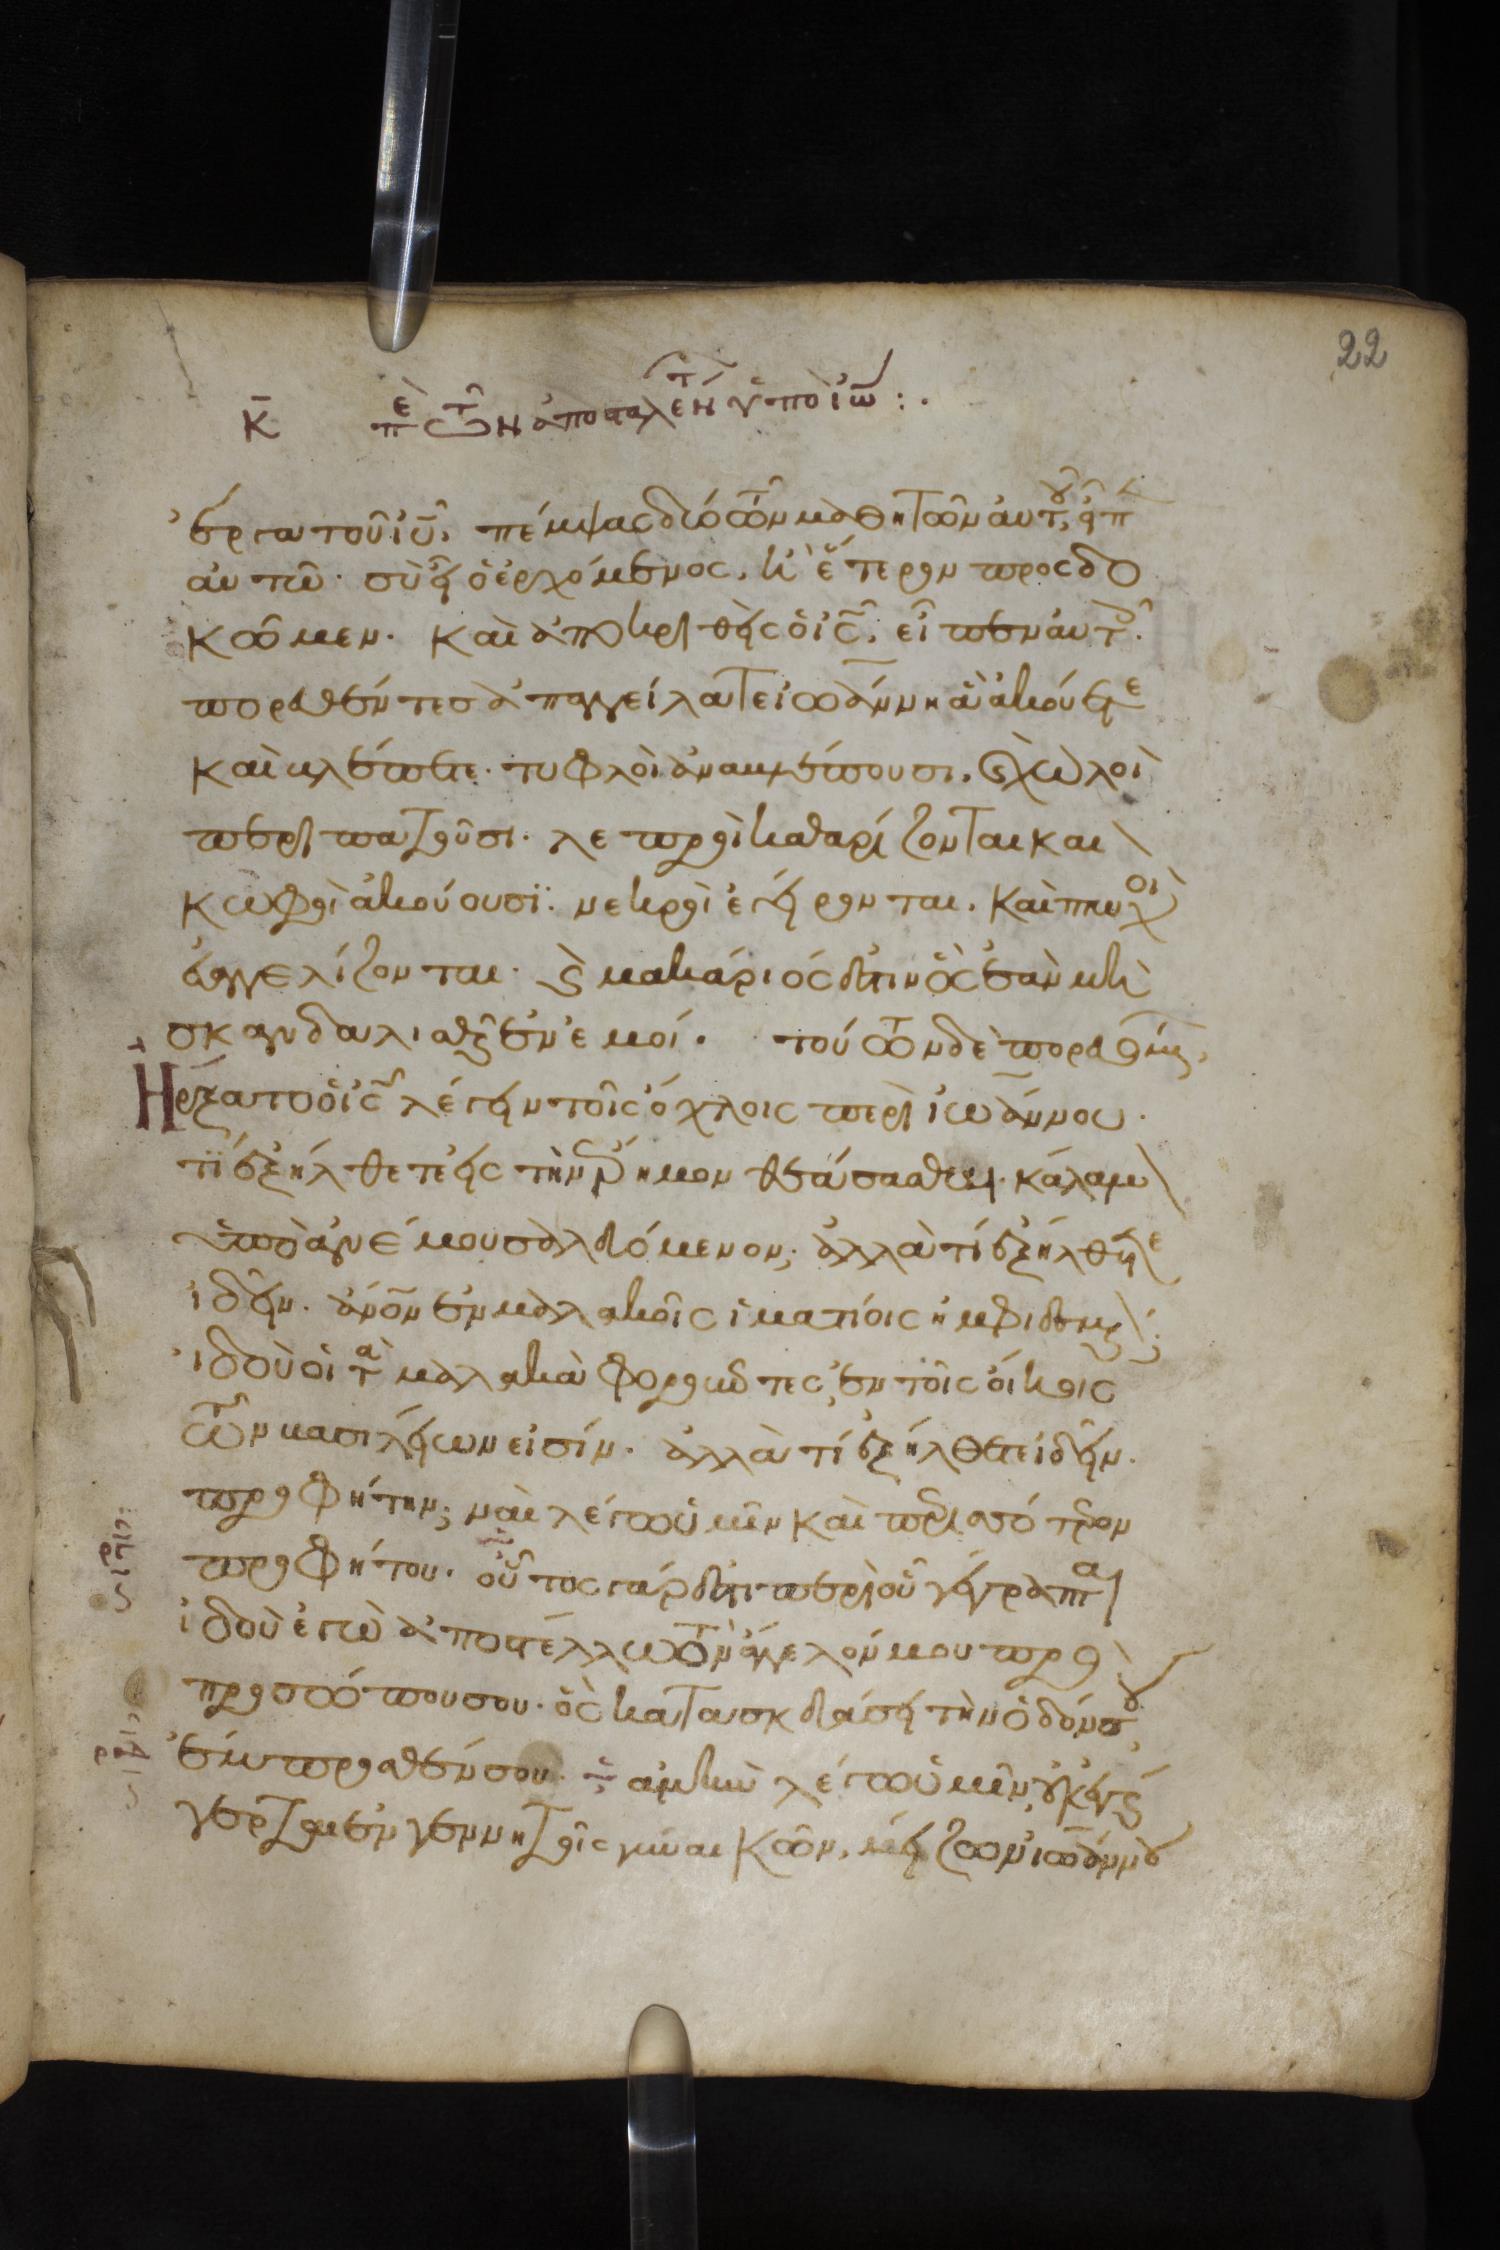 22
κ̅ πε τῶν ἀποσταλέντ ὑπὸ ἰω̅ :.
ἔργα τοῦ ἰῦ, πέμψας δύο τῶν μαθητῶν αὐτοῦ, εἶπ
αὐτῶ· σὺ εἶ ὁ ἐρχόμενος, ἢ ἕτερον προσδο
κῶμεν· καὶ ἀποκριθεὶς ὁ ἰς̅, εἶπεν αὐτοῖς·
πορευθέντες ἀπαγγείλατε ἰωάννη ἃ ἀκούετε
καὶ βλέπετε· τυφλοὶ ἀναβλέπουσι, καὶ χωλοὶ
περιπατοῦσι· λεπροὶ καθαρίζονται καὶ
κωφοὶ ἀκούουσι· νεκροὶ ἐγείρονται, καὶ πτωχοὶ
εὐαγγελίζονται· καὶ μακάριός ἐστιν ὃς ἐὰν μὴ
σκανδαλισθῆ ἐν ἐμοί. τούτων δὲ πορευομένων,
Ἤρξατο ὁ ἰς̅ λέγειν τοῖς ὄχλοις περὶ ἰωάννου·
τί ἐξήλθετε εἰς τὴν ἔρημον θεάσασθαι· κάλαμον
ὑπὸ ἀνέμου σαλευόμενον; ἀλλὰ τί ἐξήλθετε
ἰδεῖν· ἄνον ἐν μαλακοῖς ἱματίοις ἠμφιεσμένον;
ἰδοὺ οἱ τὰ μαλακὰ φοροῦντες, ἐν τοῖς οἴκοις
τῶν βασιλείων εἰσίν· ἀλλὰ τί ἐξήλθετε ἰδεῖν·
προφήτην; ναὶ λέγω ὑμῖν καὶ περισσότερον
προφήτου· οὗτος γάρ ἐστι περὶ οὗ γέγραπται
ἰδοὺ ἐγὼ ἀποστέλλω τὸν ἄγγελόν μου πρὸ
προσώπου σου· ὃς κατασκευάσει τὴν ὁδόν σου
ἔμπροσθέν σου· ἀμὴν λέγω ὑμῖν, οὐκ ἐγή
γερται ἐν γεννητοῖς γυναικῶν, μείζων ἰωάννου